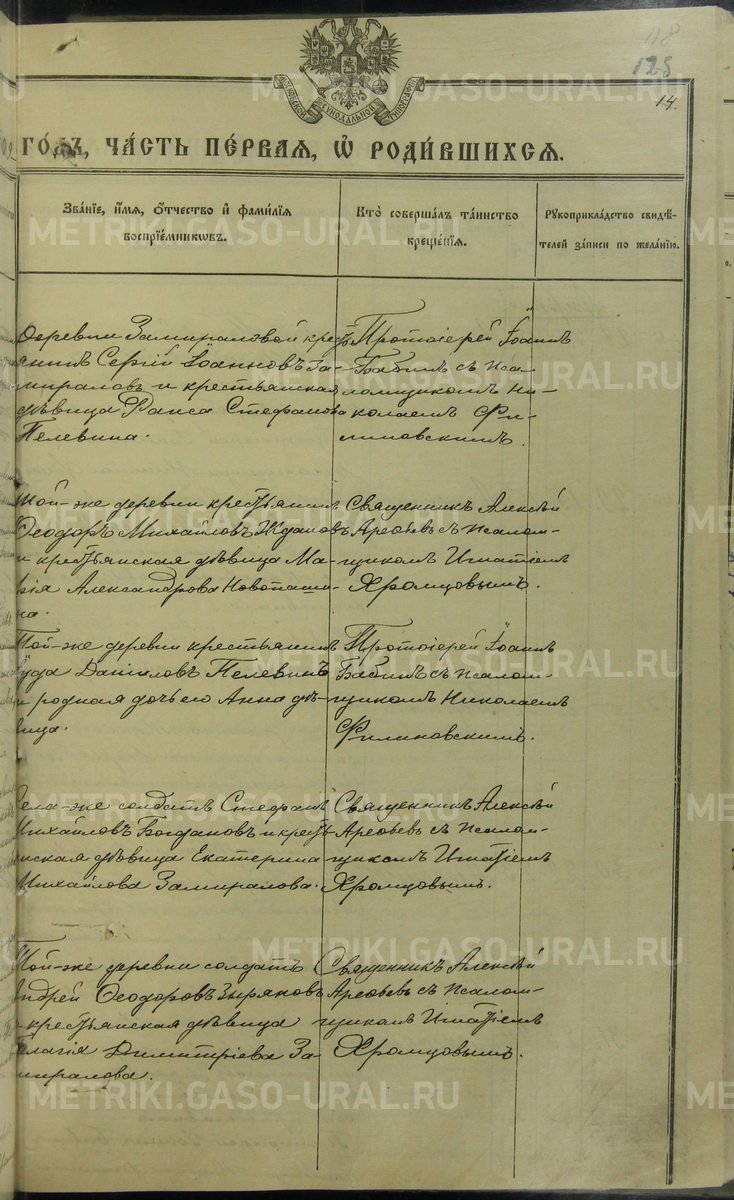 118
128
14.
МОСКОВСКОЙ СѴНОДАЛЬНОЙ ТИПОГРАФІИ
ГО́ДЪ, ЧА́СТЬ ПЕ́РВАЯ, Ѡ҆ РОДИ́ВШИХСЯ.
Зва́ніе, и҆́мя, ѻ҆́тчество и҆ фами́лїя
воспрїе́мникωвъ.
Кто̀ соверша́лъ та́инство
креще́нїя.
Рꙋкоприкла́дство свидѣ́-
телей за́писи по жела́нїю.
Деревни Замираловой крес
янинъ Сергій Іоанновъ За-
мираловъ и крестьянская
дѣвица Раиса Стефанова
Пелевина.
Протоіерей Іоаннъ
Бабинъ съ Пса-
ломщикомъ Ни-
колаемъ Фи-
линовскимъ.
Той-же деревни крестьянинъ
Ѳеодоръ Михайловъ Ждановъ
и крестьянская дѣвица Ма-
рія Александрова Новопаши-
на.
Священникъ Алексѣй
Арефьевъ съ Псалом-
щикомъ Игнатіемъ
Хромцовымъ.
Той-же деревни крестьянинъ
Іуда Даніиловъ Пелевинъ
и родная дочь его Анна дѣ-
вица.
Протоіерей Іоаннъ
Бабинъ съ Псалом-
щикомъ Николаемъ
Филиновскимъ.
Села-же солдатъ Стефанъ
Михайловъ Богдановъ и кресть
янская дѣвица Екатерина
Михайлова Замиралова.
Священникъ Алексѣй
Арефьевъ съ Псалом-
щикомъ Игнатіемъ
Хромцовымъ.
Той-же деревни солдатъ
Андрей Ѳеодоровъ Зыряновъ
и крестьянская дѣвица
Пелагія Димитріева За-
миралова.
Священникъ Алексѣй
Арефьевъ съ Псалом-
щикомъ Игнатіемъ
Хромцовымъ.
METRIKI.GASO-URAL.RU